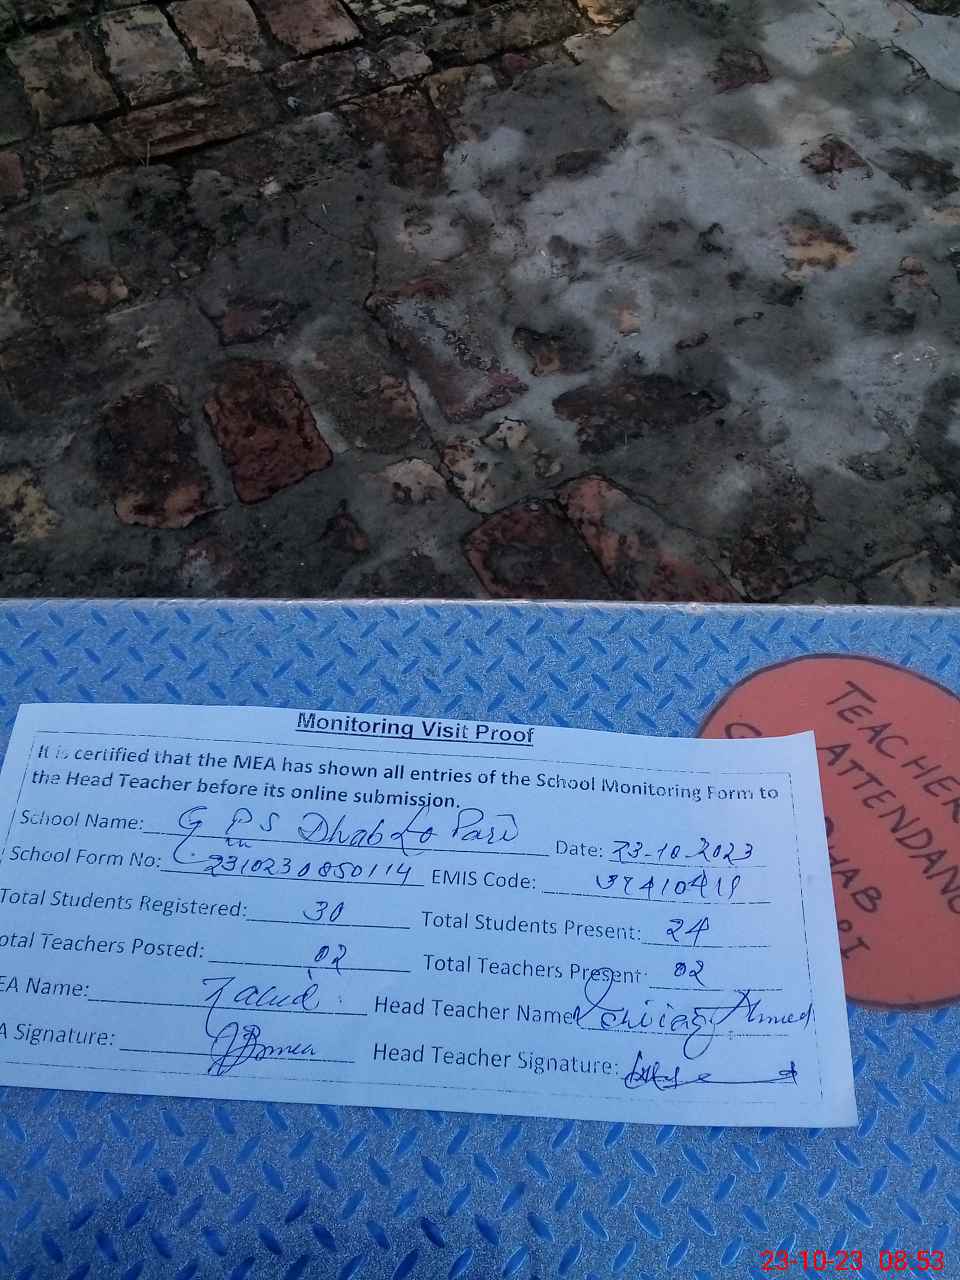 Monitoring Visit Proof
It is certified that the MEA has shown all entries of the School Monitoring Form to
the Head Teacher before its online submission.
School Name: GPS Dhab Lo Pari Date: 23-10-2023
School Form No: 2310230850114 EMIS Code: 37410419
Total Students Registered: 30 Total Students Present: 24
otal Teachers Posted: 02 Total Teachers Present: 02
EA Name: Head Teacher Name: Ahmed
A Signature: Head Teacher Signature:
TEACHER
ATTENDANC
HAB
23-10-23 08.53